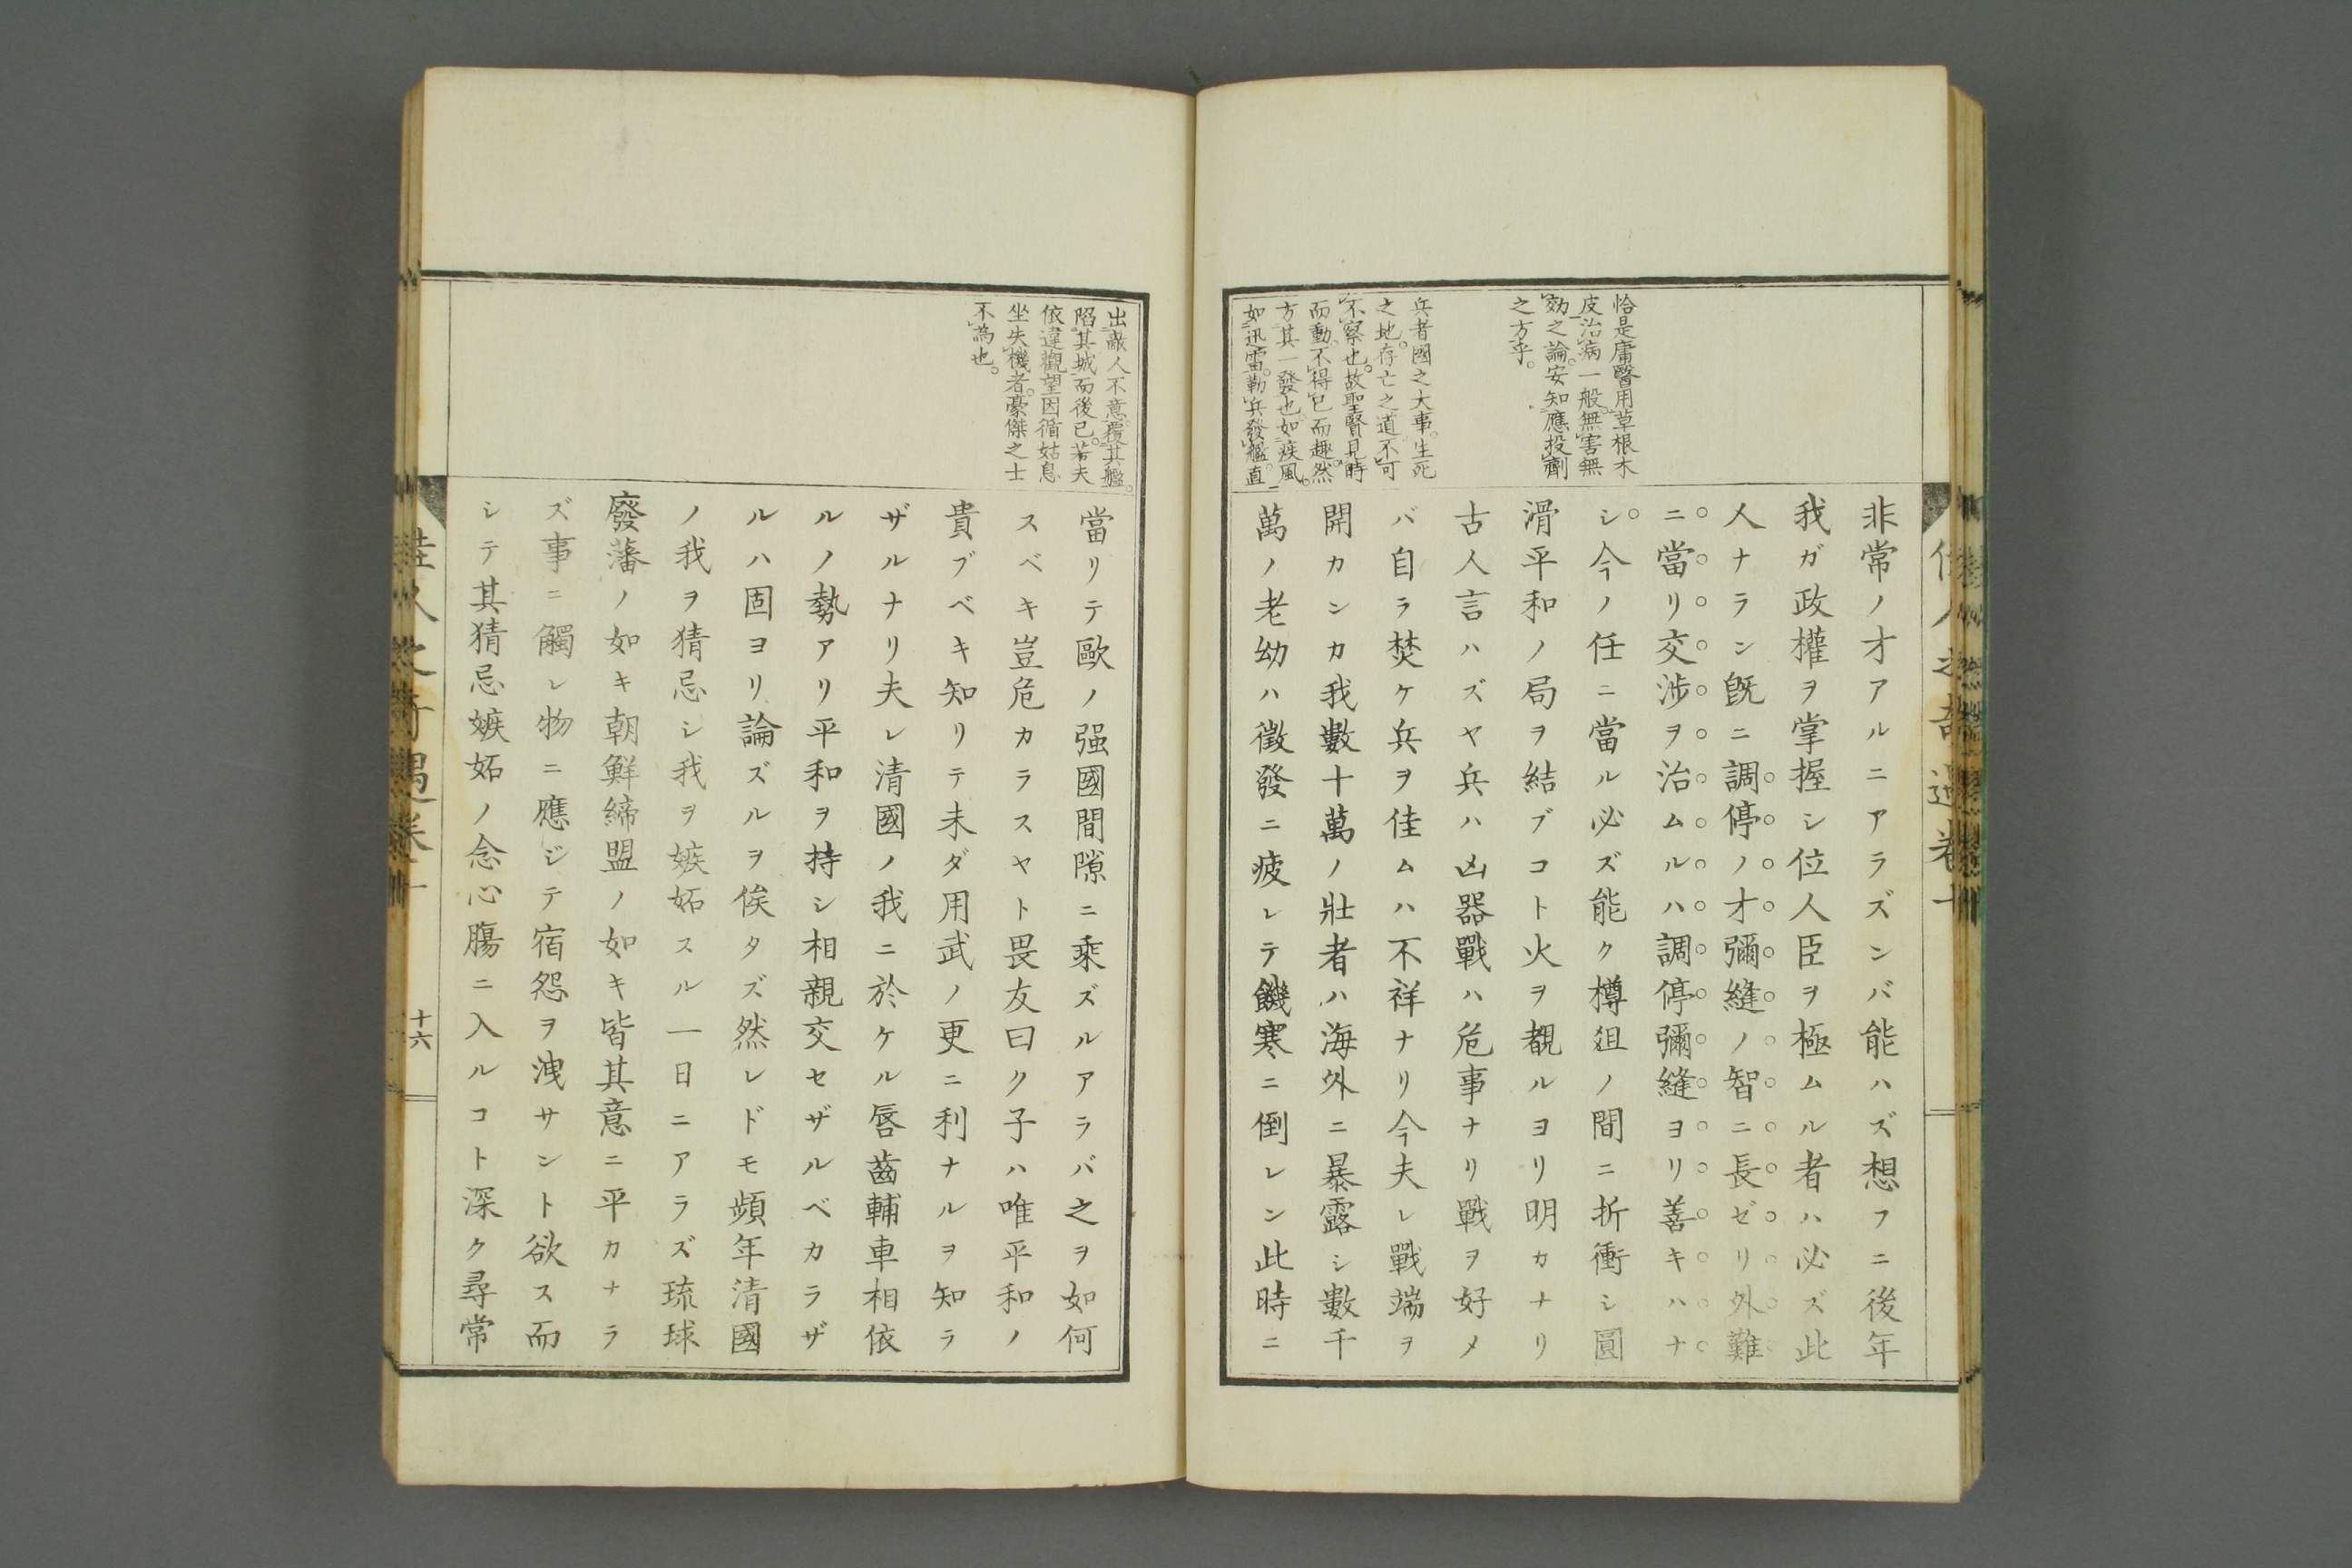 佳人之奇遇卷十
恰是庸醫用草根木
皮治病一般無害無
効之論。安知應投劑
之方乎。
兵者國之大事。生死
之地。存亡之道不可
不察也。故聖賢見時
而動。不得已而趣。然
方其一發也。如疾風。
如迅雷。勒兵發艦。直
非常ノ才アルニアラズンバ能ハズ想フニ後年
我ガ政權ヲ掌握シ位人臣ヲ極ムル者ハ必ズ此
人ナラン既ニ調停ノ才彌縫ノ智ニ長ゼリ外難
ニ當リ交渉ヲ治ムルハ調停彌縫ヨリ善キハナ
シ今ノ任ニ當ル必ズ能ク樽俎ノ間ニ折衝シ圓
滑平和ノ局ヲ結ブコト火ヲ覩ルヨリ明カナリ
古人言ハズヤ兵ハ凶器戰ハ危事ナリ戰ヲ好メ
バ自ラ焚ケ兵ヲ佳ムハ不祥ナリ今夫レ戰端ヲ
開カンカ我數十萬ノ壯者ハ海外ニ暴露シ數千
萬ノ老幼ハ徵發ニ疲レテ饑寒ニ倒レン此時ニ
出敵人不意。覆其艦。
陷其城而後已。若夫
依違觀望因循姑息
坐失機者。豪傑之士
不為也。
當リテ歐ノ强國間隙ニ乘ズルアラバ之ヲ如何
スベキ豈危カラスヤト畏友曰ク子ハ唯平和ノ
貴ブベキ知リテ未ダ用武ノ更ニ利ナルヲ知ラ
ザルナリ夫レ清國ノ我ニ於ケル唇齒輔車相依
ルノ勢アリ平和ヲ持シ相親交セザルベカラザ
ルハ固ヨリ論ズルヲ俟タズ然レドモ頻年清國
ノ我ヲ猜忌シ我ヲ嫉妬スル一日ニアラズ琉球
廢藩ノ如キ朝鮮締盟ノ如キ皆其意ニ平カナラ
ズ事ニ觸レ物ニ應ジテ宿怨ヲ洩サント欲ス而
シテ其猜忌嫉妬ノ念心膓ニ入ルコト深ク尋常
佳人之奇遇卷十
十六